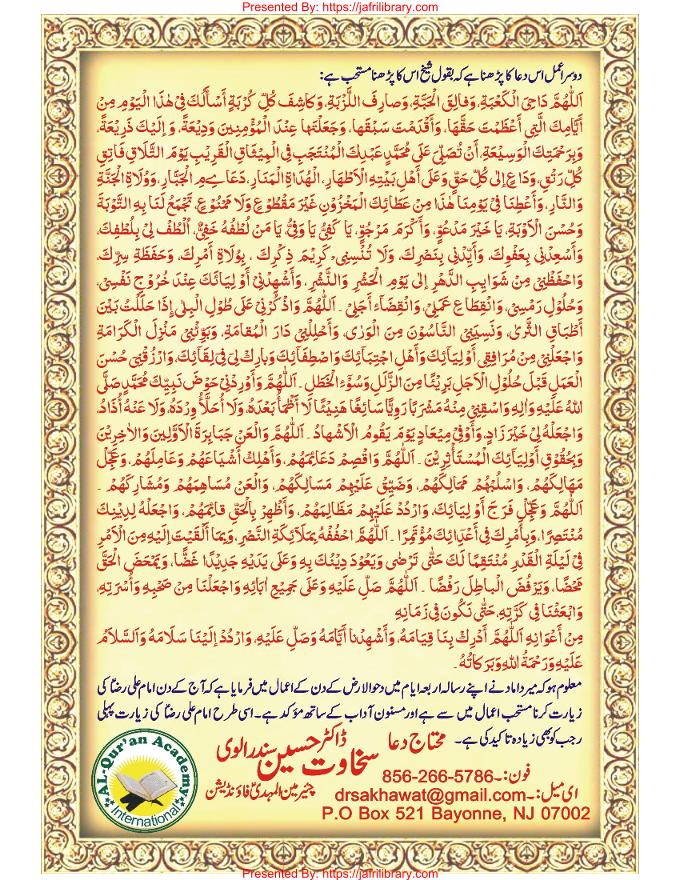 Presented By: https://jafrilibrary.com
دوسرا عمل اس دعا کا پڑھنا ہے کہ بقول شیخ اس کا پڑھنا مستحب ہے:
اَللّٰهُمَّ دَاحِيَ الْكَعْبَةِ، وَفَالِقَ الْحَبَّةِ، وَصَارِفَ اللَّزْبَةِ، وَكَاشِفَ كُلِّ كُرْبَةٍ، أَسْأَلُكَ فِي هٰذَا الْيَوْمِ مِنْ
أَيَّامِكَ الَّتِي أَعْظَمْتَ حَقَّهَا، وَأَقْدَمْتَ سَبْقَهَا، وَجَعَلْتَهَا عِنْدَ الْمُؤْمِنِينَ وَدِيْعَةً، وَإِلَيْكَ ذَرِيْعَةً،
وَبِرَحْمَتِكَ الْوَسِيْعَةِ، أَنْ تُصَلِّيَ عَلٰى مُحَمَّدٍ عَبْدِكَ الْمُنْتَجَبِ فِي الْمِيْثَاقِ الْقَرِيْبِ يَوْمَ التَّلَاقِ فَاتِقِ
كُلِّ رَتْقٍ، وَدَاعٍ إِلٰى كُلِّ حَقٍّ، وَعَلٰى أَهْلِ بَيْتِهِ الْأَطْهَارِ، الْهُدَاةِ الْمَنَارِ، دَعَائِمِ الْجَبَّارِ، وَوُلَاةِ الْجَنَّةِ
وَالنَّارِ، وَأَعْطِنَا فِيْ يَوْمِنَا هٰذَا مِنْ عَطَائِكَ الْمَخْزُوْنِ غَيْرَ مَقْطُوْعٍ وَلَا مَمْنُوْعٍ، تَجْمَعُ لَنَا بِهِ التَّوْبَةَ
وَحُسْنَ الْأَوْبَةِ، يَا خَيْرَ مَدْعُوٍّ، وَأَكْرَمَ مَرْجُوٍّ، يَا كَفِيُّ يَا وَفِيُّ، يَا مَنْ لُطْفُهُ خَفِيٌّ، اُلْطُفْ لِيْ بِلُطْفِكَ،
وَأَسْعِدْنِيْ بِعَفْوِكَ، وَأَيِّدْنِيْ بِنَصْرِكَ، وَلَا تُنْسِنِيْ كَرِيْمَ ذِكْرِكَ، بِوُلَاةِ أَمْرِكَ، وَحَفَظَةِ سِرِّكَ،
وَاحْفَظْنِيْ مِنْ شَوَايِبِ الدَّهْرِ إِلٰى يَوْمِ الْحَشْرِ وَالنَّشْرِ، وَأَشْهِدْنِيْ أَوْلِيَائَكَ عِنْدَ خُرُوْجِ نَفْسِيْ،
وَحُلُوْلِ رَمْسِيْ، وَانْقِطَاعِ عَمَلِيْ، وَانْقِضَاءِ أَجَلِيْ۔ اَللّٰهُمَّ وَاذْكُرْنِيْ عَلٰى طُوْلِ الْبِلٰى إِذَا حَلَلْتُ بَيْنَ
أَطْبَاقِ الثَّرٰى، وَنَسِيَنِيَ النَّاسُوْنَ مِنَ الْوَرٰى، وَأَحْلِلْنِيْ دَارَ الْمُقَامَةِ، وَبَوِّئْنِيْ مَنْزِلَ الْكَرَامَةِ
وَاجْعَلْنِيْ مِنْ مُرَافِقِيْ أَوْلِيَائِكَ وَأَهْلِ اجْتِبَائِكَ وَاصْطِفَائِكَ وَبَارِكْ لِيْ فِيْ لِقَائِكَ، وَارْزُقْنِيْ حُسْنَ
الْعَمَلِ قَبْلَ حُلُوْلِ الْأَجَلِ بَرِيْئًا مِنَ الزَّلَلِ وَسُوْءِ الْخَطَلِ۔ اَللّٰهُمَّ وَأَوْرِدْنِيْ حَوْضَ نَبِيِّكَ مُحَمَّدٍ صَلَّى
اللّٰهُ عَلَيْهِ وَاٰلِهِ وَاسْقِنِيْ مِنْهُ مَشْرَبًا رَوِيًّا سَائِغًا هَنِيْئًا لَا أَظْمَأُ بَعْدَهُ، وَلَا أُحَلَّأُ وِرْدَهُ، وَلَا عَنْهُ أُذَادُ،
وَاجْعَلْهُ لِيْ خَيْرَ زَادٍ، وَأَوْفٰى مِيْعَادٍ يَوْمَ يَقُوْمُ الْأَشْهَادُ۔ اَللّٰهُمَّ وَالْعَنْ جَبَابِرَةَ الْأَوَّلِيْنَ وَالْاٰخِرِيْنَ
وَبِحُقُوْقِ أَوْلِيَائِكَ الْمُسْتَأْثِرِيْنَ۔ اَللّٰهُمَّ وَاقْصِمْ دَعَائِمَهُمْ، وَأَهْلِكْ أَشْيَاعَهُمْ وَعَامِلَهُمْ، وَعَجِّلْ
مَهَالِكَهُمْ، وَاسْلُبْهُمْ مَمَالِكَهُمْ، وَضَيِّقْ عَلَيْهِمْ مَسَالِكَهُمْ، وَالْعَنْ مُسَاهِمَهُمْ وَمُشَارِكَهُمْ۔
اَللّٰهُمَّ وَعَجِّلْ فَرَجَ أَوْلِيَائِكَ، وَارْدُدْ عَلَيْهِمْ مَظَالِمَهُمْ، وَأَظْهِرْ بِالْحَقِّ قَائِمَهُمْ، وَاجْعَلْهُ لِدِيْنِكَ
مُنْتَصِرًا، وَبِأَمْرِكَ فِيْ أَعْدَائِكَ مُؤْتَمِرًا۔ اَللّٰهُمَّ احْفُفْهُ بِمَلَائِكَةِ النَّصْرِ، وَبِمَا أَلْقَيْتَ إِلَيْهِ مِنَ الْأَمْرِ
فِيْ لَيْلَةِ الْقَدْرِ مُنْتَقِمًا لَكَ حَتّٰى تَرْضٰى وَيَعُوْدَ دِيْنُكَ بِهِ وَعَلٰى يَدَيْهِ جَدِيْدًا غَضًّا، وَيَمْحَضَ الْحَقَّ
مَحْضًا، وَيَرْفُضَ الْبَاطِلَ رَفْضًا۔ اَللّٰهُمَّ صَلِّ عَلَيْهِ وَعَلٰى جَمِيْعِ اٰبَائِهِ وَاجْعَلْنَا مِنْ صَحْبِهِ وَأُسْرَتِهِ،
وَابْعَثْنَا فِيْ كَرَّتِهِ، حَتّٰى نَكُوْنَ فِيْ زَمَانِهِ
مِنْ أَعْوَانِهِ اَللّٰهُمَّ أَدْرِكْ بِنَا قِيَامَهُ، وَأَشْهِدْنَا أَيَّامَهُ وَصَلِّ عَلَيْهِ، وَارْدُدْ إِلَيْنَا سَلَامَهُ وَالسَّلَامُ
عَلَيْهِ وَرَحْمَةُ اللّٰهِ وَبَرَكَاتُهُ۔
معلوم ہو کہ میر داماد نے اپنے رسالہ اربعہ ایام میں دحوالارض کے دن کے اعمال میں فرمایا ہے کہ آج کے دن امام علی رضاؑ کی
زیارت کرنا مستحب اعمال میں سے ہے اور مسنون آداب کے ساتھ مؤکد ہے۔ اسی طرح امام علی رضاؑ کی زیارت پہلی
رجب کو بھی زیادہ تاکید کی ہے۔ محتاج دعا
ڈاکٹر سخاوت حسین سندرالوی
چیئرمین المہدیؑ فاؤنڈیشن
فون:۔856-266-5786
ای میل:۔drsakhawat@gmail.com
P.O Box 521 Bayonne, NJ 07002
AL-Qur'an Academy
International
Presented By: https://jafrilibrary.com